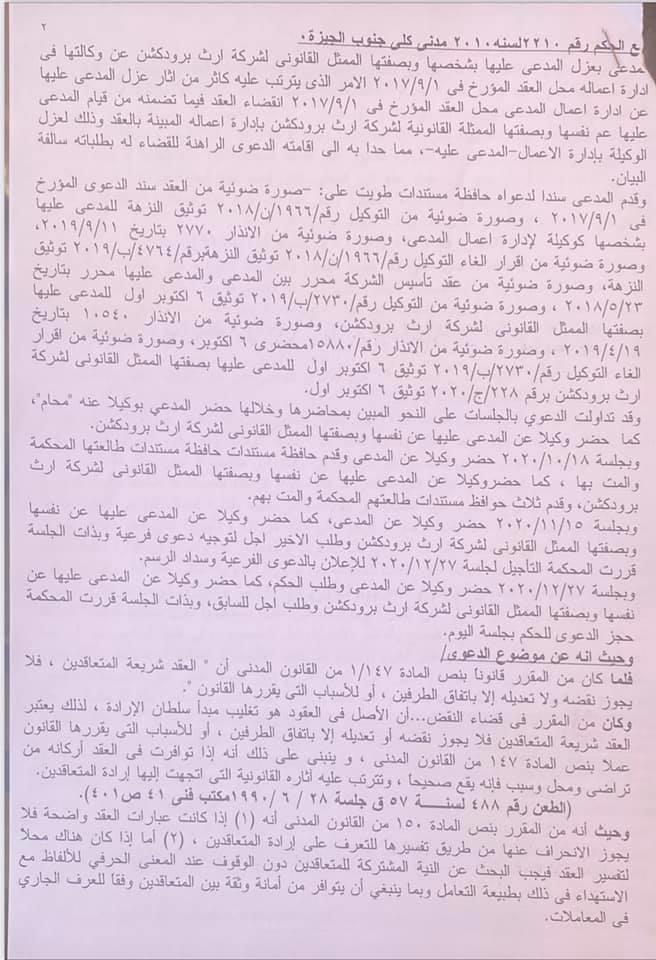 ٢
ع الحكم رقم ٢٢١٠لسنه٢٠١٠ مدنى كلى جنوب الجيزة.
مدعى بعزل المدعى عليها بشخصها وبصفتها الممثل القانونى لشركة ارث برودكشن عن وكالتها فى
ادارة اعماله محل العقد المؤرخ فى ٢٠١٧/٩/١ الامر الذى يترتب عليه كاثر من اثار عزل المدعى عليها
عن ادارة اعمال المدعى محل العقد المؤرخ فى ٢٠١٧/٩/١ انقضاء العقد فيما تضمنه من قيام المدعى
عليها عم نفسها وبصفتها الممثلة القانونية لشركة ارث برودكشن بإدارة اعماله المبينة بالعقد وذلك لعزل
الوكيلة بإدارة الاعمال-المدعى عليه-، مما حدا به الى اقامته الدعوى الراهنة للقضاء له بطلباته سالفة
البيان.
وقدم المدعى سندا لدعواه حافظة مستندات طويت على: -صورة ضوئية من العقد سند الدعوى المؤرخ
فى ٢٠١٧/٩/١ ، وصورة ضوئية من التوكيل رقم/١٩٦٦/ن/٢٠١٨ توثيق النزهة للمدعى عليها
بشخصها كوكيلة لإدارة اعمال المدعى، وصورة ضوئية من الانذار ٢٧٧٠ بتاريخ ٢٠١٩/٩/١١،
وصورة ضوئية من اقرار الغاء التوكيل رقم/١٩٦٦/ن/٢٠١٨ توثيق النزهةبرقم/٤٧٦٤/ب/٢٠١٩ توثيق
النزهة، وصورة ضوئية من عقد تأسيس الشركة محرر بين المدعى والمدعى عليها محرر بتاريخ
٢٠١٨/٥/٢٣ ، وصورة ضوئية من التوكيل رقم/٢٧٣٠/ب/٢٠١٩ توثيق ٦ اكتوبر اول للمدعى عليها
بصفتها الممثل القانونى لشركة ارث برودكشن، وصورة ضوئية من الانذار ١٠٥٤٠ بتاريخ
٢٠١٩/٤/١٩ ، وصورة ضوئية من الانذار رقم/١٥٨٨٠محضرى ٦ اكتوبر، وصورة ضوئية من اقرار
الغاء التوكيل رقم/٢٧٣٠/ب/٢٠١٩ توثيق ٦ اكتوبر اول للمدعى عليها بصفتها الممثل القانونى لشركة
ارث برودكشن برقم ٢٢٨/ج/٢٠٢٠ توثيق ٦ اكتوبر اول.
وقد تداولت الدعوي بالجلسات على النحو المبين بمحاضرها وخلالها حضر المدعي بوكيلا عنه "محام"،
كما حضر وكيلا عن المدعى عليها عن نفسها وبصفتها الممثل القانونى لشركة ارث برودكشن.
وبجلسة ٢٠٢٠/١٠/١٨ حضر وكيلا عن المدعى وقدم حافظة مستندات حافظة مستندات طالعتها المحكمة
والمت بها ، كما حضروكيلا عن المدعى عليها عن نفسها وبصفتها الممثل القانونى لشركة ارث
برودكشن، وقدم ثلاث حوافظ مستندات طالعتهم المحكمة والمت بهم.
وبجلسة ٢٠٢٠/١١/١٥ حضر وكيلا عن المدعى، كما حضر وكيلا عن المدعى عليها عن نفسها
وبصفتها الممثل القانونى لشركة ارث برودكشن وطلب الاخير اجل لتوجيه دعوى فرعية وبذات الجلسة
قررت المحكمة التأجيل لجلسة ٢٠٢٠/١٢/٢٧ للإعلان بالدعوى الفرعية وسداد الرسم.
وبجلسة ٢٠٢٠/١٢/٢٧ حضر وكيلا عن المدعى وطلب الحكم، كما حضر وكيلا عن المدعى عليها عن
نفسها وبصفتها الممثل القانونى لشركة ارث برودكشن وطلب اجل للسابق، وبذات الجلسة قررت المحكمة
حجز الدعوى للحكم بجلسة اليوم.
وحيث انه عن موضوع الدعوى/
فلما كان من المقرر قانوناً بنص المادة ١/١٤٧ من القانون المدنى أن " العقد شريعة المتعاقدين ، فلا
يجوز نقضه ولا تعديله إلا باتفاق الطرفين ، أو للأسباب التى يقررها القانون ".
وكان من المقرر فى قضاء النقض...أن الأصل فى العقود هو تغليب مبدأ سلطان الإرادة ، لذلك يعتبر
العقد شريعة المتعاقدين فلا يجوز نقضه أو تعديله إلا باتفاق الطرفين ، أو للأسباب التى يقررها القانون
عملا بنص المادة ١٤٧ من القانون المدنى ، و ينبنى على ذلك أنه إذا توافرت فى العقد أركانه من
تراضى ومحل وسبب فإنه يقع صحيحاً ، وتترتب عليه أثاره القانونية التى اتجهت إليها إرادة المتعاقدين.
(الطعن رقم ٤٨٨ لسنـــة ٥٧ ق جلسة ٢٨ / ٦ / ١٩٩٠مكتب فنى ٤١ ص٤٠١).
وحيث أنه من المقرر بنص المادة ١٥٠ من القانون المدنى أنه (١) إذا كانت عبارات العقد واضحة فلا
يجوز الانحراف عنها من طريق تفسيرها للتعرف على إرادة المتعاقدين ، (٢) أما إذا كان هناك محلا
لتفسير العقد فيجب البحث عن النية المشتركة للمتعاقدين دون الوقوف عند المعنى الحرفي للألفاظ مع
الاستهداء فى ذلك بطبيعة التعامل وبما ينبغي أن يتوافر من أمانة وثقة بين المتعاقدين وفقاً للعرف الجاري
فى المعاملات.